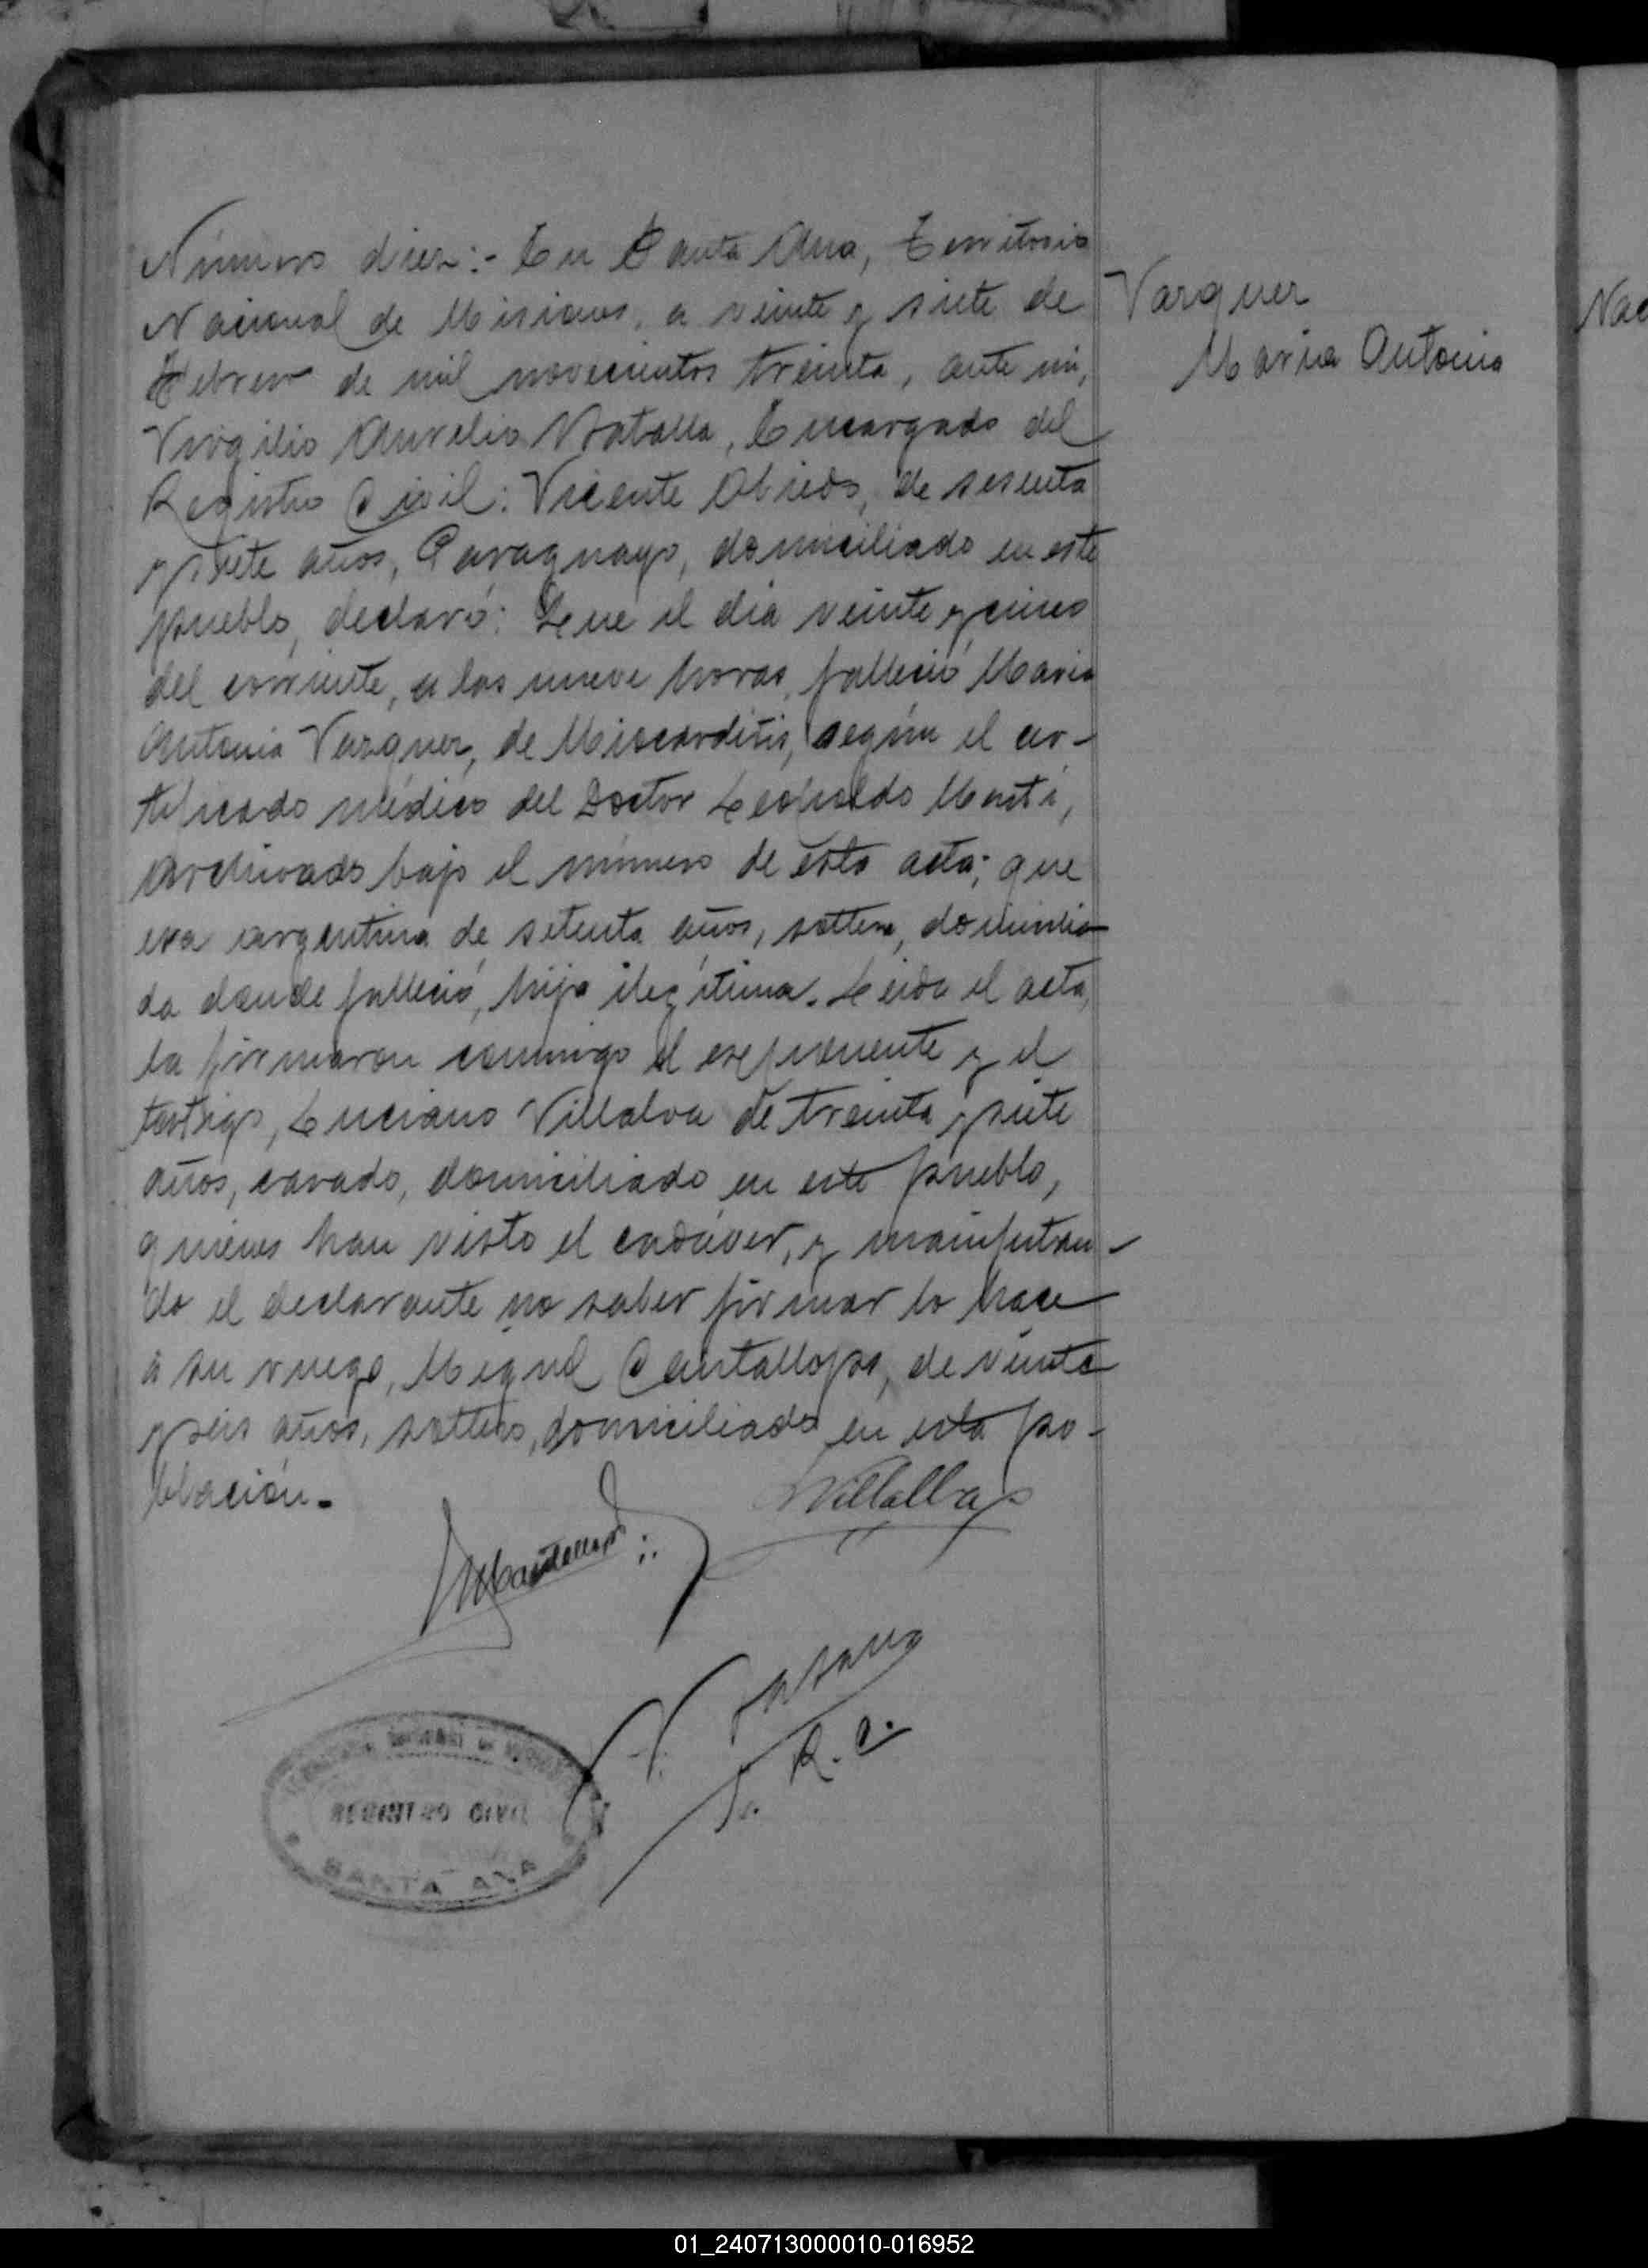 Número diez:- En Santa Ana, Territorio
Nacional de Misiones, a veinte y siete de
Febrero de mil novecientos treinta, ante mi,
Virgilio Aurelio Batalla, Encargado del
Registro Civil: Vicente Obiedo, de sesenta
y siete años, Paraguayo, domiciliado en este
pueblo, declaró: Que el dia veinte y cinco
del corriente, a las nueve horas, falleció Maria
Antonia Vazquez, de Miocarditis, según el cer-
tificado médico del Doctor Leopoldo
archivado bajo el número de esta acta; que
era argentina de setenta años, soltera, domicilia-
da donde falleció, hija ilegítima. Leida el acta,
la firmaron conmigo el exponente y el
testigo, Luciano Villalva de treinta y siete
años, casado, domiciliado en este pueblo,
quienes han visto el cadáver, y manifestan-
do el declarante no saber firmar lo hace
á su ruego, Miguel Cantallops, de veinte
y seis años, soltero, domiciliado en esta po-
blación.-
Vazquez
Maria Antonia
Nac
LVillalba
MCantallops
R. C.
REGISTRO CIVIL
SANTA ANA
01_240713000010-016952